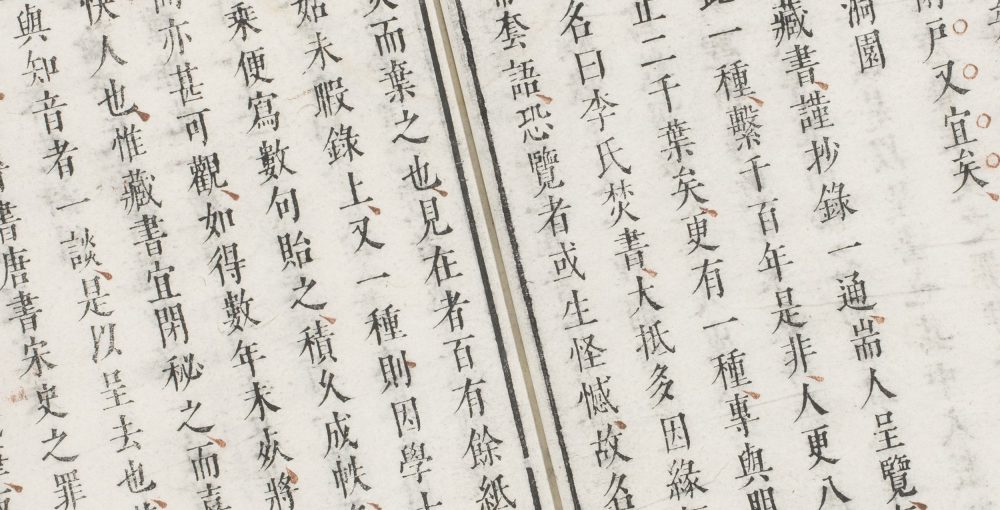 雨戶又宜矣
洞園
藏書謹抄錄一通耑人呈覽
一種繫千百年是非人更八
正二千葉矣更有一種專與朋
名曰李氏焚書大抵多因緣
套語恐覽者或生怪憾故名
而棄之也見在者百有餘紙
姑未暇錄上又一種則因學士
乘便寫數句貽之積久成帙
而亦甚可觀如得數年未死將
快人也惟藏書宜閉秘之而喜
與知音者一談是以呈去也
書唐書宋史之罪